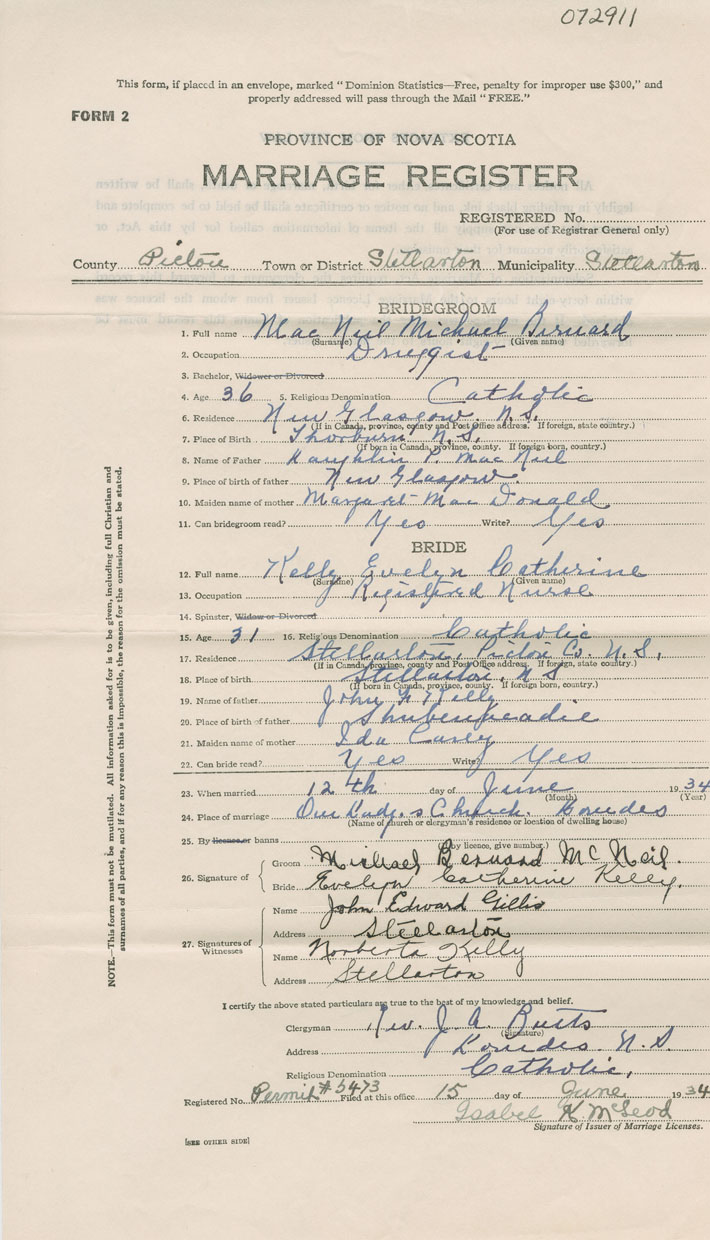 072911
This form, if placed in an envelope, marked "Dominion Statistics—Free, penalty for improper use $300," and
properly addressed will pass through the Mail "FREE."
FORM 2
PROVINCE OF NOVA SCOTIA
MARRIAGE REGISTER
REGISTERED No.
(For use of Registrar General only)
County Pictou Town or District Stellarton Municipality Stellarton
BRIDEGROOM
1. Full name Mac Neil Michael Bernard
(Surname) (Given name)
2. Occupation Druggist
3. Bachelor, Widower or Divorced
4. Age 36 5. Religious Denomination Catholic
6. Residence New Glasgow. N.S.
(If in Canada, province, county and Post Office address. If foreign, state country.)
7. Place of Birth Thorburn N.S.
(If born in Canada, province, county. If foreign born, country.)
8. Name of Father Laughlin P. Mac Neil
9. Place of birth of father New Glasgow.
10. Maiden name of mother Margaret Mac Donald
11. Can bridegroom read? Yes Write? Yes
BRIDE
12. Full name Kelly Evelyn Catherine
(Surname) (Given name)
13. Occupation Registered Nurse
14. Spinster, Widow or Divorced
15. Age 31 16. Religious Denomination Catholic
17. Residence Stellarton, Pictou Co. N.S.
(If in Canada, province, county and Post Office address. If foreign, state country.)
18. Place of birth Stellarton, N S
(If born in Canada, province, county. If foreign born, country.)
19. Name of father John Kelly
20. Place of birth of father Shubenacadie
21. Maiden name of mother Ida Carey
22. Can bride read? Yes Write? Yes
23. When married 12th day of June 1934
(Month) (Year)
24. Place of marriage Our Lady's Church. Lourdes
(Name of church or clergyman's residence or location of dwelling house)
25. By licence or banns
(by licence, give number.)
26. Signature of
Groom Michael Bernard McNeil.
Bride Evelyn Catherine Kelly.
27. Signatures of Witnesses
Name John Edward Gillis
Address Stellarton
Name Norberta Kelly
Address Stellarton
I certify the above stated particulars are true to the best of my knowledge and belief.
Clergyman Rev. J. A. Butts
(Signature)
Address Lourdes. N.S
Religious Denomination Catholic,
Registered No. Permit #5473 Filed at this office 15 day of June 1934
Isabel K McLeod
Signature of Issuer of Marriage Licenses.
[SEE OTHER SIDE]
NOTE.—This form must not be mutilated. All information asked for is to be given, including full Christian and
surnames of all parties, and if for any reason this is impossible, the reason for the omission must be stated.